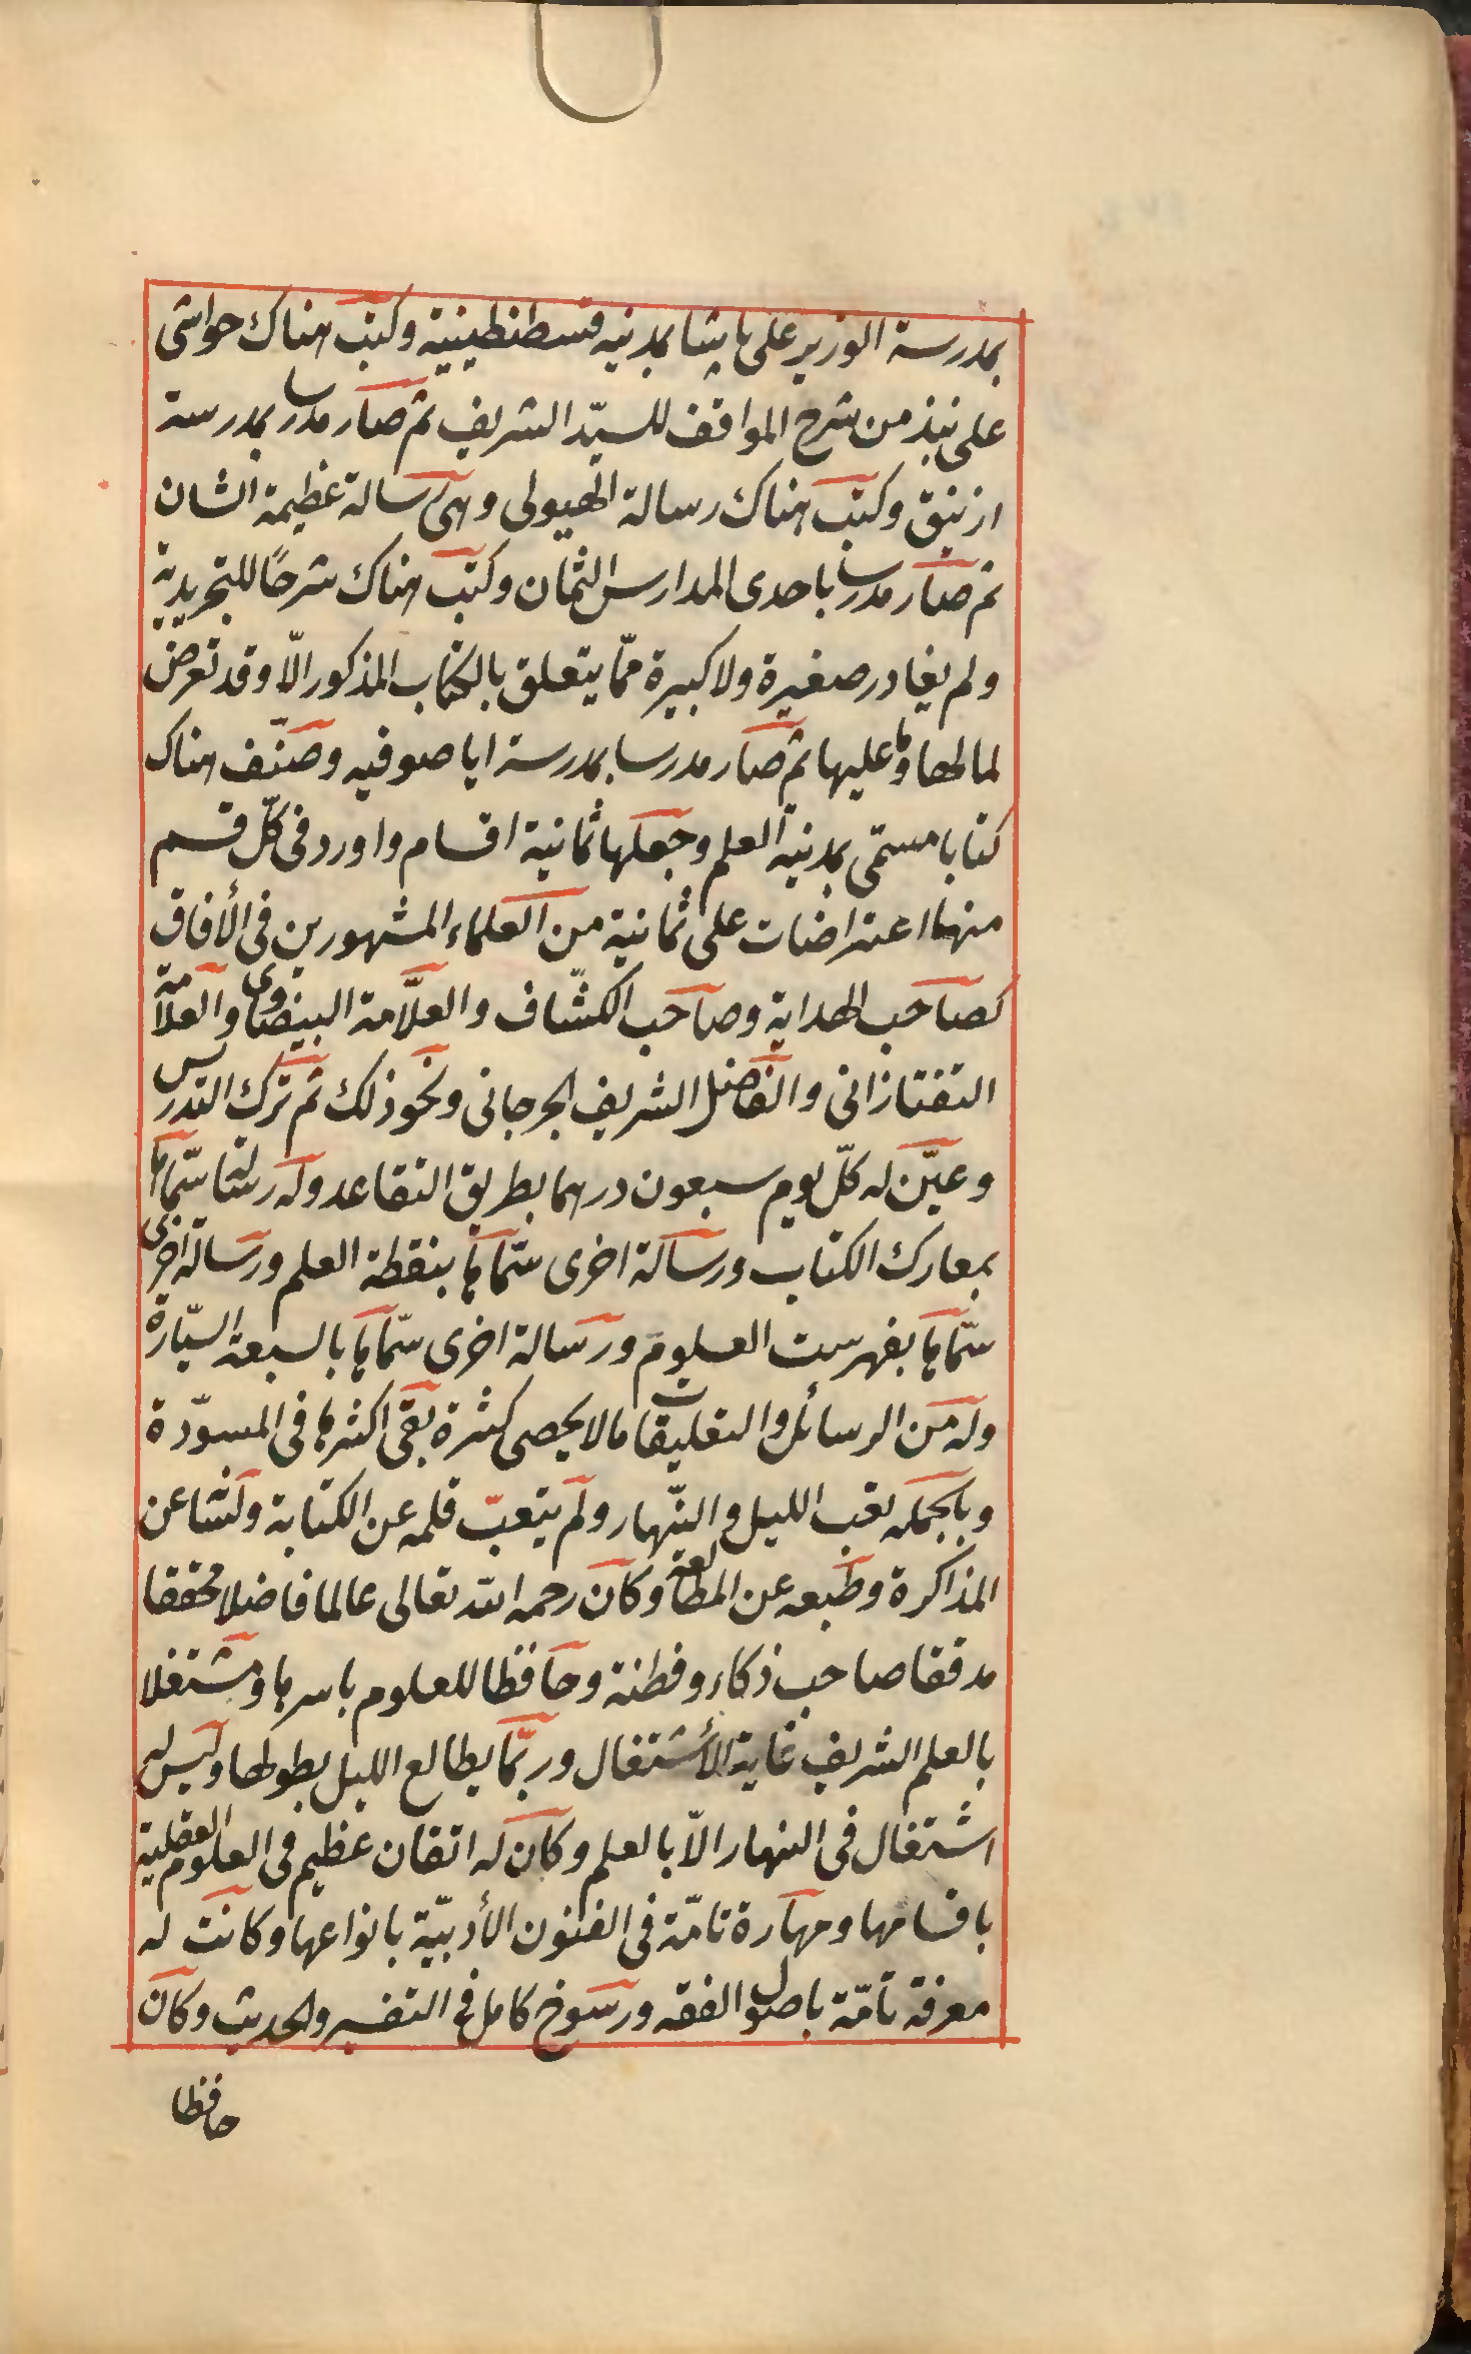 بمدرسة الوزير على پاشا بمدينه قسطنطينية وكتب هناك حواشى
على نبذ من شرح المواقف للسيّد الشريف ثم صار مدرسا بمدرسة
ازنيق وكتب هناك رسالة الهيولى وهى رسالة عظيمة الشان
ثم صار مدرسا باحدى المدارس الثمان وكتب هناك شرحًا للتجريدية
ولم يغادر صغيرة ولا كبيرة ممّا يتعلق بالكتاب المذكور الّا وقد تعرض
لما لها وما عليها ثم صار مدرسا بمدرسة ايا صوفيه وصنّف هناك
كتابا مسمّى بمدنية العلم وجعلها ثمانية اقسام واورد فى كلّ قسم
منها اعتراضات على ثمانية من العلماء المشهورين فى الأفاق
كصاحب الهداية وصاحب الكشّاف والعلّامة البيضاوى والعلامة
التفتازانى والفاضل الشريف الجرجانى ونحو ذلك ثم ترك التدريس
وعيّن له كلّ يوم سبعون درهما بطريق التقاعد وله رسالة سمّاها
بمعارك الكتاب ورسالة اخرى سمّاها بنقطة العلم ورسالة اخرى
سمّاها بفهرست العلوم ورسالة اخرى سمّاها بالسبعة السيّارة
وله من الرسائل والتعليقات ما لا يحصى كثرة بقى اكثرها فى المسوّدة
وبالجمله تعب الليل والنّهار ولم يتعب قلمه عن الكتابة ولسانا عن
المذاكرة وطبعه عن المطالعة وكان رحمه الله تعالى عالما فاضلا محققا
مدققا صاحب ذكاء وفطنة وحافظا للعلوم باسرها ومشتغلا
بالعلم الشريف غاية الأشتغال وربّما يطالع الليل بطولها وليس له
اشتغال فى النهار الّا بالعلم وكان له اتقان عظيم فى العلوم العقلية
باقسامها ومهارة تامّة فى الفنون الأدبيّة بانواعها وكانت له
معرفة تامّة باصول الفقه ورسوخ كامل فى التفسير والحديث وكان
حافظا